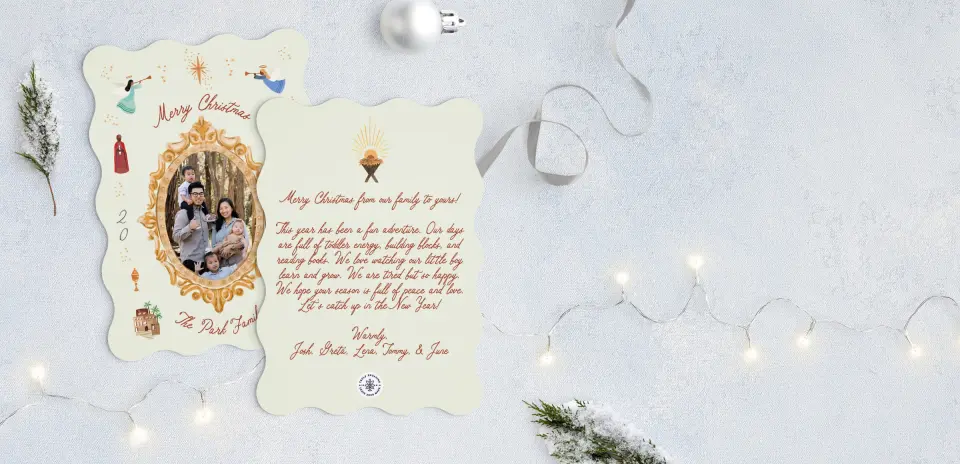 Merry Christmas
20
The Park Famil
Merry Christmas from our family to yours!
This year has been a fun adventure. Our days
are full of toddler energy, building blocks, and
reading books. We love watching our little boy
learn and grow. We are tired but so happy.
We hope your season is full of peace and love.
Let's catch up in the New Year!
Warmly,
Josh, Greta, Lena, Tommy, & June